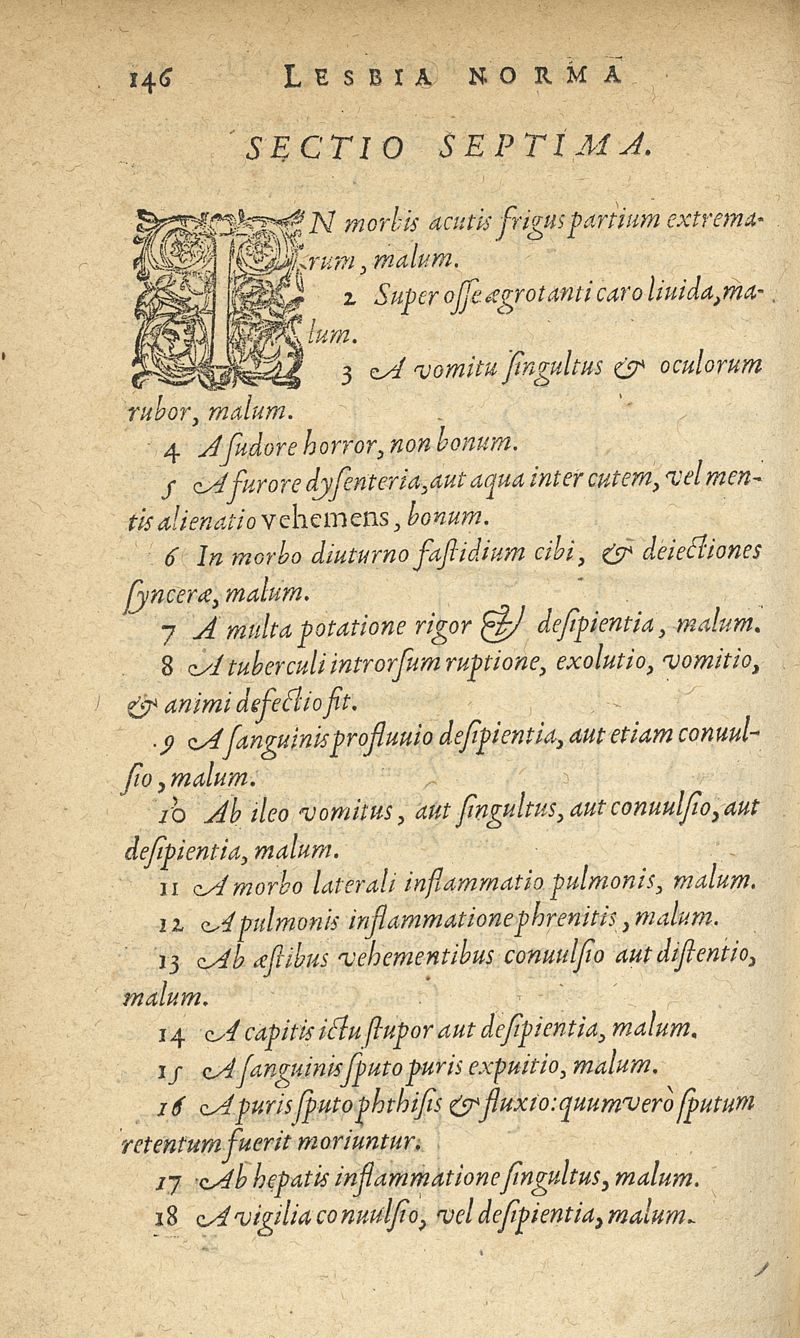 146 LESBIA NORMA
SECTIO SEPTIMA.
IN morbis acutis frigus partium extrema-
rum, malum.
2 Super osse ægrotanti caro liuida, ma-
lum.
3 A vomitu singultus & oculorum
rubor, malum.
4 A sudore horror, non bonum.
5 A furore dysenteria, aut aqua inter cutem, vel men-
tis alienatio vehemens, bonum.
6 In morbo diuturno fastidium cibi, & deiectiones
synceræ, malum.
7 A multa potatione rigor & desipientia, malum.
8 A tuberculi introrsum ruptione, exolutio, vomitio,
& animi defectio fit.
9 A sanguinis profluuio desipientia, aut etiam conuul-
sio, malum.
10 Ab ileo vomitus, aut singultus, aut conuulsio, aut
desipientia, malum.
11 A morbo laterali inflammatio pulmonis, malum.
12 A pulmonis inflammatione phrenitis, malum.
13 Ab æstibus vehementibus conuulsio aut distentio,
malum.
14 A capitis ictu stupor aut desipientia, malum.
15 A sanguinis sputo puris expuitio, malum.
16 A puris sputo phthisis & fluxio: quum verò sputum
retentum fuerit moriuntur.
17 Ab hepatis inflammatione singultus, malum.
18 A vigilia conuulsio, vel desipientia, malum.